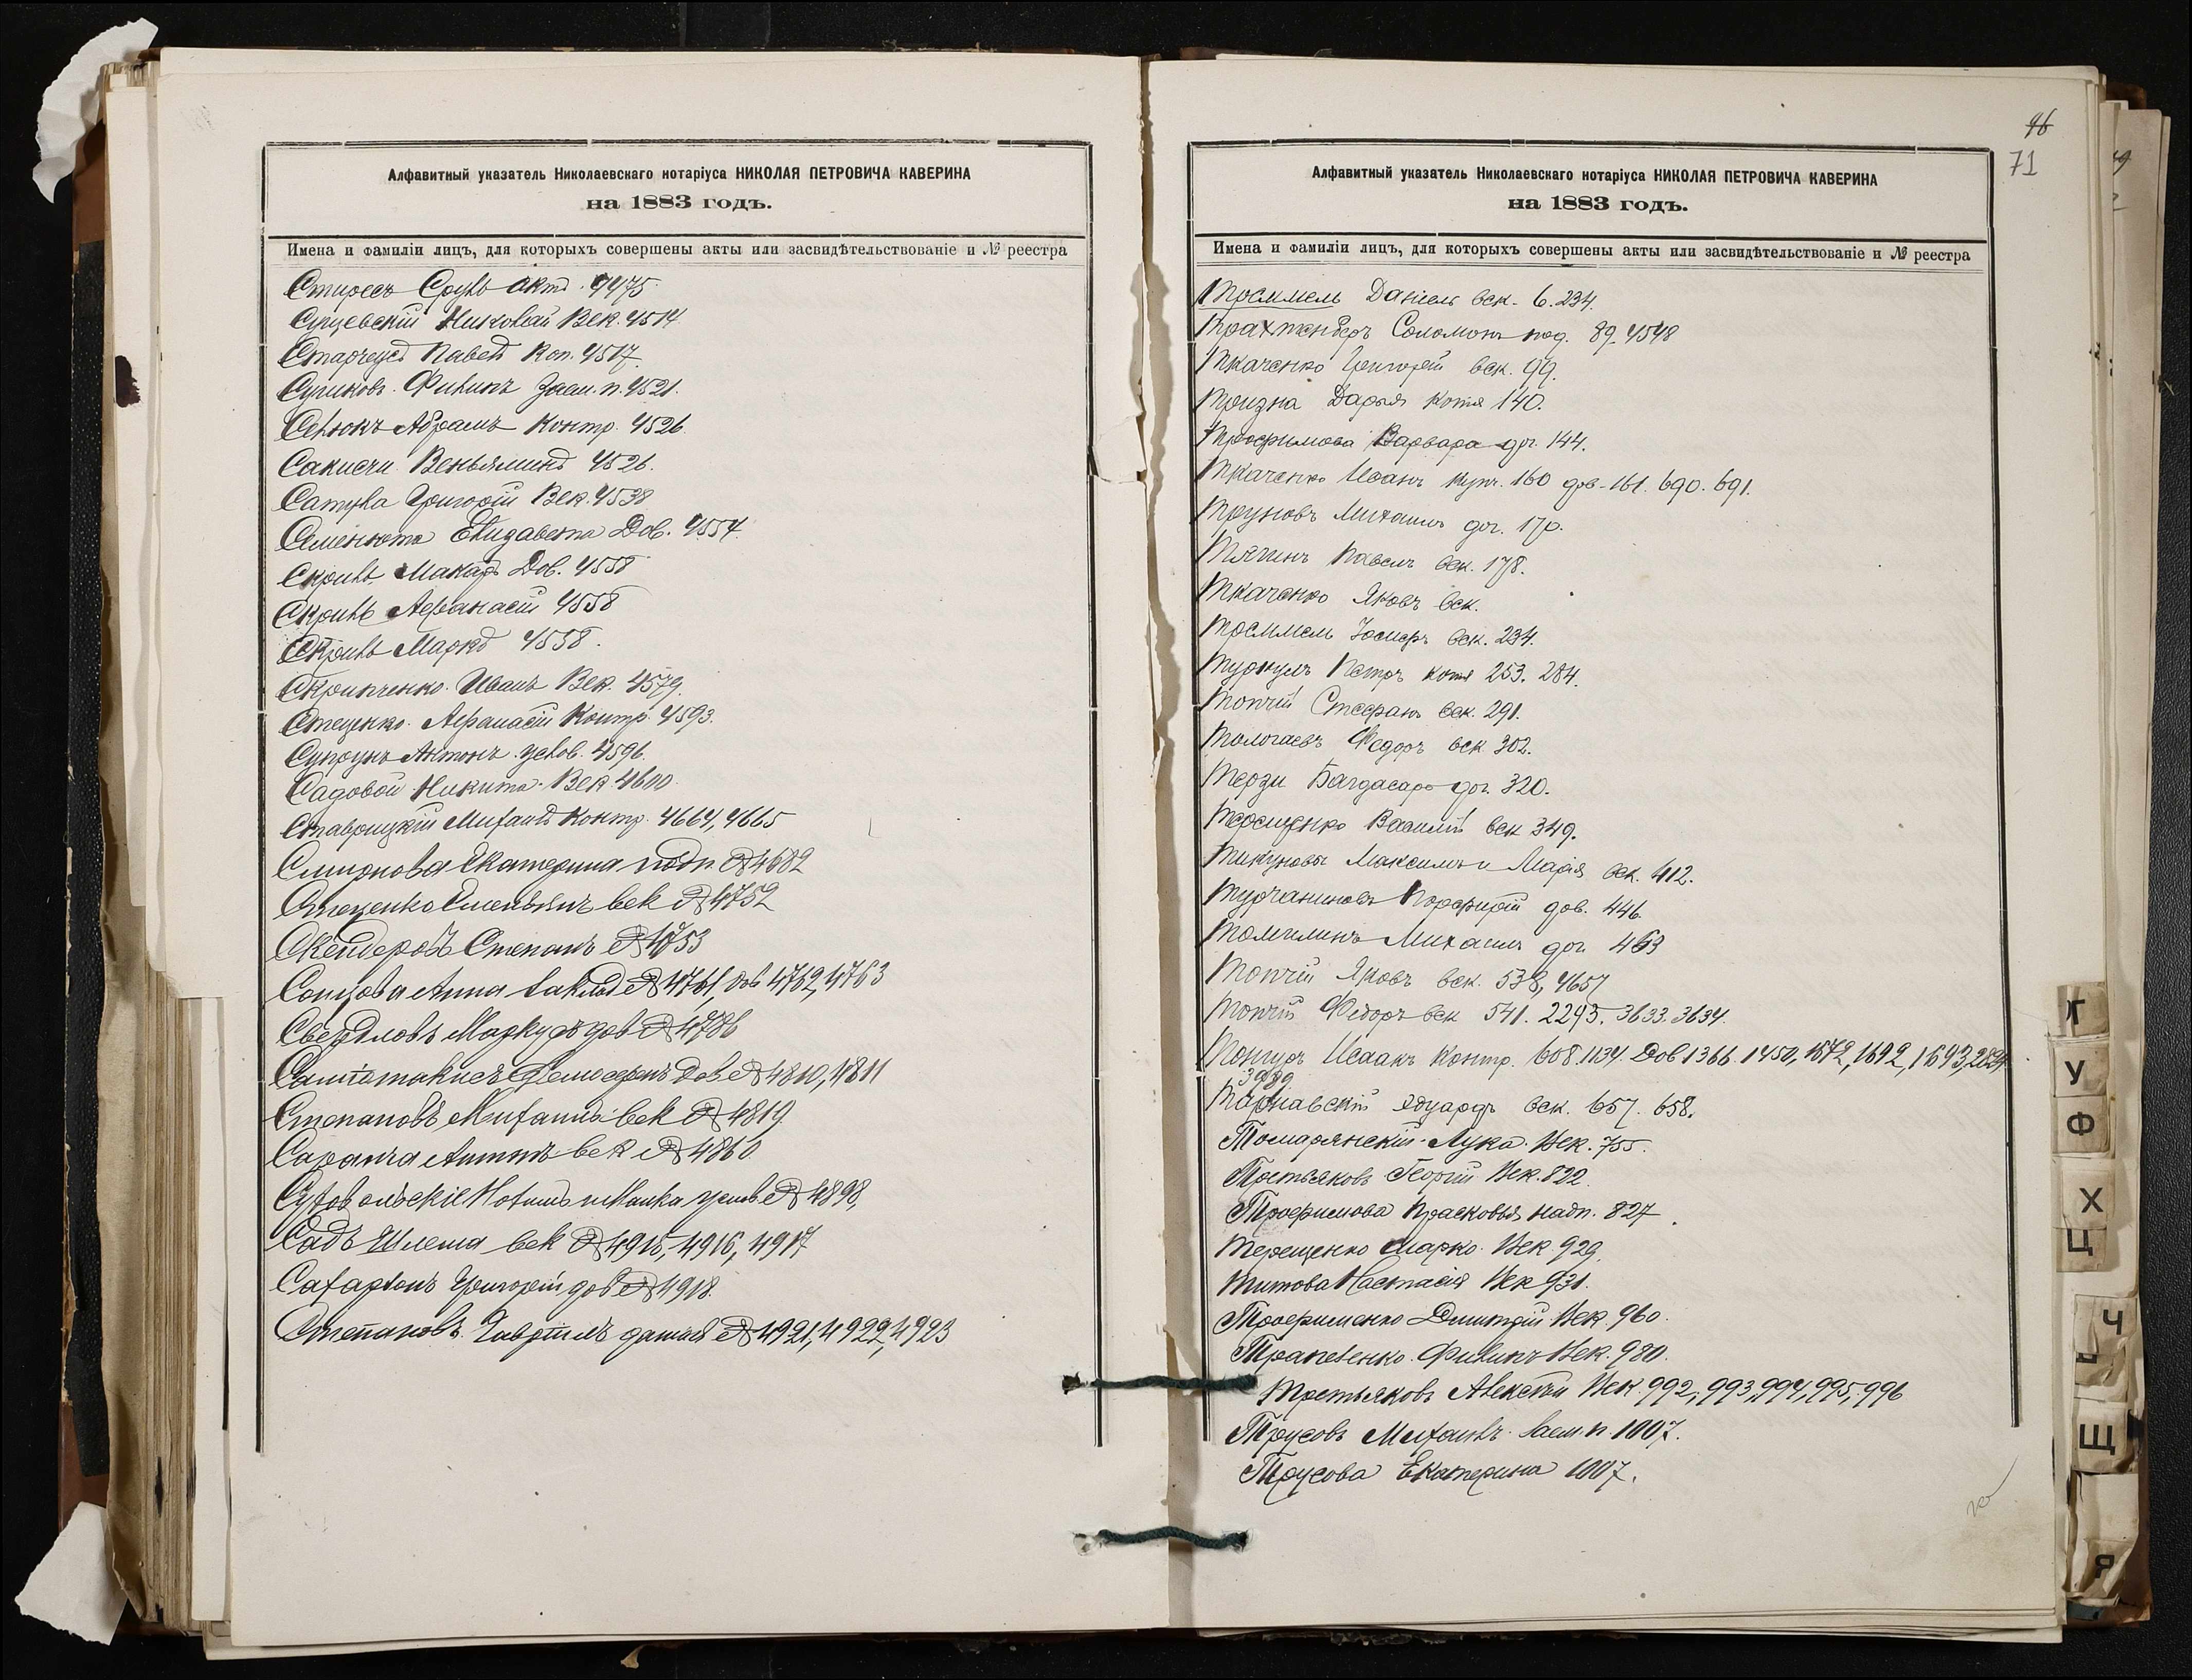 Алфавитный указатель Николаевскаго нотаріуса НИКОЛАЯ ПЕТРОВИЧА КАВЕРИНА
на 1883 годъ.
Имена и фамиліи лицъ, для которыхъ совершены акты или засвидѣтельствованіе и № реестра
Сруль актъ. 4475
Николай Век. 4514
Павелъ Коп. 4517.
Суриковъ. Филипъ Заем. п. 4521.
Абрамъ Контр. 4526
Веньяминъ 4526.
Григорій Век. 4538
Семенюта Елизавета Дов. 4554.
Скриль Макаръ Дов. 4558
Скриль Афанасій 4558
Скриль Маркъ 4558.
Скрипченко. Иванъ Век. 4579.
Стеценко. Афанасій Контр. 4593.
Супрунъ Антонъ. услов. 4596.
Садовой Никита. Век. 4600.
Ставрицкій Михаилъ Контр. 4664, 4665
Смирнова Екатерина подп. № 4682
Стеценко Емельянъ век № 4752
Скендеровъ Степанъ № 4753
Сонцова Анна заклад № 4761, дов 4762, 4763
Свердловъ дов № 4786
дов. № 4810, 4811
Степановъ Михаилъ век № 4819.
Саранча Антонъ век № 4860
услов. № 4898,
Садъ Шлема век № 4915, 4916, 4917
Григорій дов № 4918.
Степановъ. Гаврiилъ № 4921, 4922, 4923
46
71
Алфавитный указатель Николаевскаго нотаріуса НИКОЛАЯ ПЕТРОВИЧА КАВЕРИНА
на 1883 годъ.
Имена и фамиліи лицъ, для которыхъ совершены акты или засвидѣтельствованіе и № реестра
Треммель Даніель век. 6. 234.
Трахтенберъ Соломонъ под. 89. 4548
Ткаченко Григорій век. 99.
Тризна Дарья копія 140.
Трофимова Варвара дог. 144.
Ткаченко Исакъ купч. 160 дов. 161. 690. 691.
Труновъ Михаилъ дог. 170.
Тягинъ Павелъ век. 178.
Ткаченко Яковъ век.
Треммель Іосифъ век. 234.
Туркулъ Петръ копія 253. 284.
Топчій Стефанъ век. 291.
Тологаевъ Федоръ век 302.
Терзи Багдасаръ дог. 320.
Терещенко Василій век 349.
Тикуновы Максимъ и Марія век. 412.
Турчаниновъ Порфирій дов. 446.
Томилинъ Михаилъ дог. 463
Топчій Яковъ век. 538, 4657
Топчій Федоръ век 541. 2295. 3633. 3634.
Исаакъ Контр. 608. 1134. Дов 1366. 1450, 1572, 1692, 1693, 2824
3989.
Тарнавскій Эдуардъ век. 657. 658.
Томарянскій. Лука. Век. 755.
Третьяковъ Георгій Век. 822.
Трофимова Прасковья надп. 827.
Терещенко Марко. Век. 929.
Титова Настасія Век 931.
Трофименко Дмитрій. Век. 960.
Трапезенко. Филипъ Век. 980.
Третьяковъ Алексѣй Век. 992, 993, 994, 995, 996
Трусовъ Михаилъ. Заем. п. 1007.
Трусова Екатерина 1007.
Т
У
Ф
Х
Ц
Ч
Щ
Я